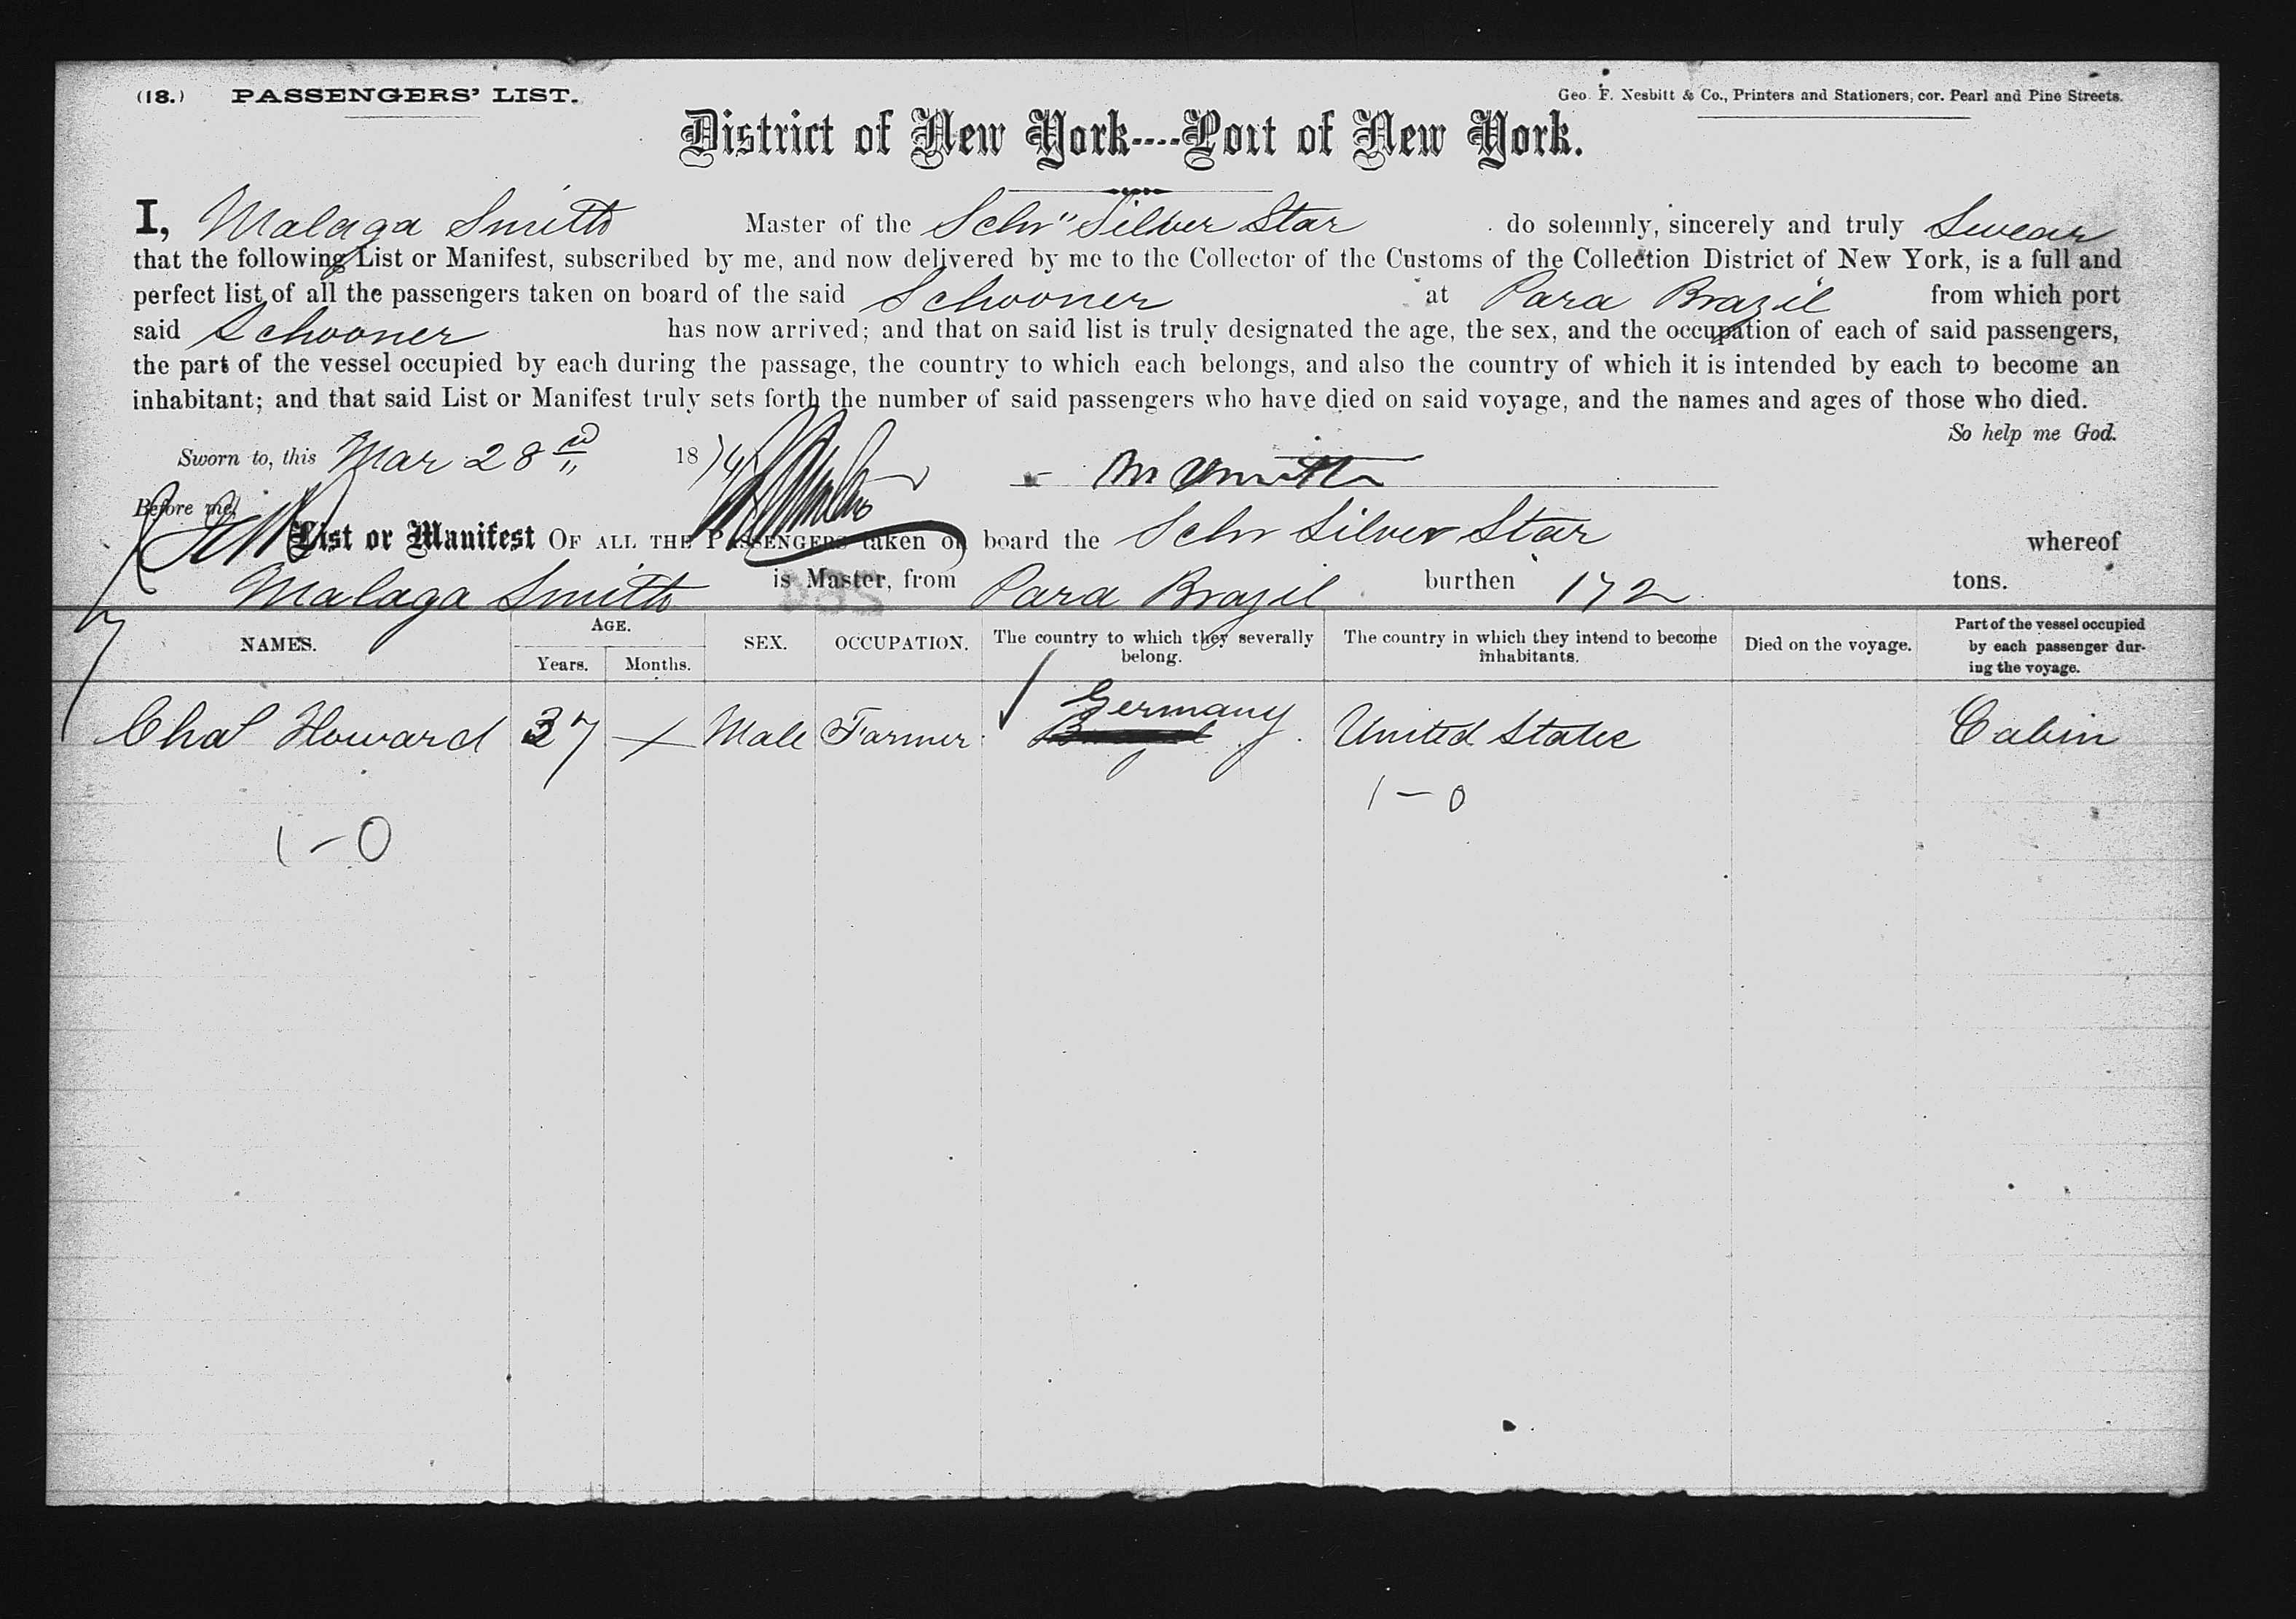 (18.) PASSENGERS' LIST.
Geo. F. Nesbitt & Co., Printers and Stationers, cor. Pearl and Pine Streets.
District of New York----Port of New York.
I, Malaga Smith Master of the Schr "Silver Star do solemnly, sincerely and truly Swear
that the following List or Manifest, subscribed by me, and now delivered by me to the Collector of the Customs of the Collection District of New York, is a full and
perfect list of all the passengers taken on board of the said Schooner at Para Brazil from which port
said Schooner has now arrived; and that on said list is truly designated the age, the sex, and the occupation of each of said passengers,
the part of the vessel occupied by each during the passage, the country to which each belongs, and also the country of which it is intended by each to become an
inhabitant; and that said List or Manifest truly sets forth the number of said passengers who have died on said voyage, and the names and ages of those who died.
So help me God.
Sworn to, this Mar 28 1874 M Smith
Before me,
List or Manifest OF ALL THE PASSENGERS taken on board the Schr Silver Star whereof
Malaga Smith is Master, from Para Brazil burthen 172 tons.
NAMES. AGE. Years. Months. SEX. OCCUPATION. The country to which they severally belong. The country in which they intend to become inhabitants. Died on the voyage. Part of the vessel occupied by each passenger during the voyage.
Chas Howard 37 × Male Farmer Germany United States Cabin
1-0
1-0